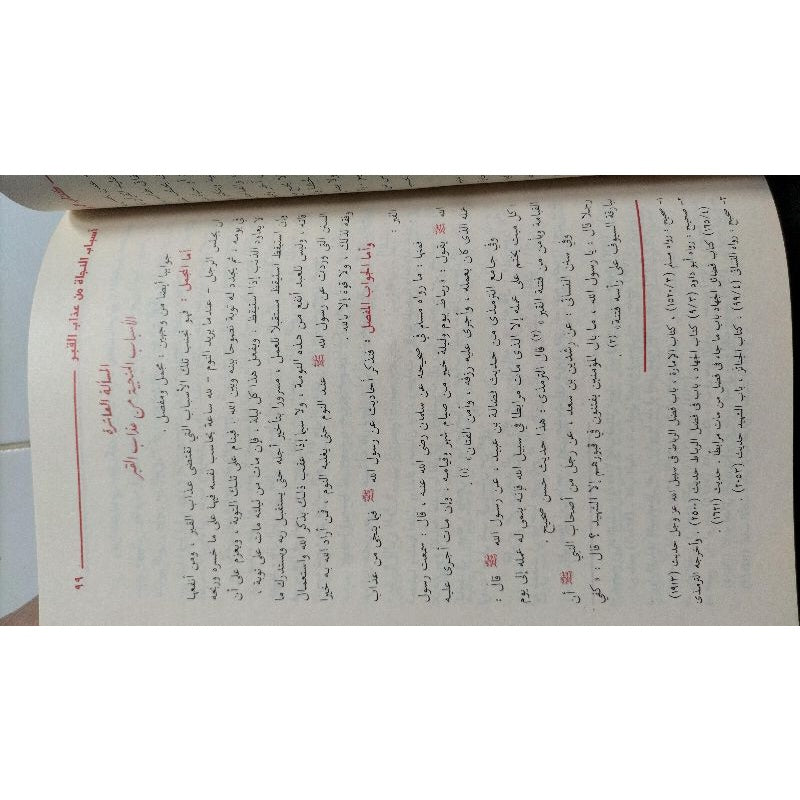 أسباب النجاة من عذاب القبر ٩٩
المسألة العاشرة
الأسباب المنجية من عذاب القبر
جوابها أيضا من وجهين : مجمل ومفصل .
أما المجمل : فهو تجنب تلك الأسباب التى تقتضى عذاب القبر ، ومن أنفعها
أن يجلس الرجل - عندما يريد النوم - لله ساعة يحاسب نفسه فيها على ما خسره وربحه
فى يومه ، ثم يجدد له توبة نصوحا بينه وبين الله ، فينام على تلك التوبة ، ويعزم على أن
لا يعاود الذنب إذا استيقظ ، ويفعل هذا كل ليلة ، فإن مات من ليلته مات على توبة ،
وإن استيقظ استيقظ مستقبلا للعمل ، مسرورا بتأخير أجله حتى يستقبل ربه ويستدرك ما
فاته ، وليس للعبد أنفع من هذه النومة ، ولا سيما إذا عقب ذلك بذكر الله واستعمال
السنن التى وردت عن رسول الله ﷺ عند النوم حتى يغلبه النوم ، فمن أراد الله به خيرا
وفقه لذلك ، ولا قوة إلا بالله .
وأما الجواب المفصل : فنذكر أحاديث عن رسول الله ﷺ فيما ينجى من عذاب
القبر :
فمنها : ما رواه مسلم فى صحيحه عن سلمان رضى الله عنه ، قال : سمعت رسول
الله ﷺ يقول : « رباط يوم وليلة خير من صيام شهر وقيامه ، وإن مات أجرى عليه
عمله الذى كان يعمله ، وأجرى عليه رزقه ، وأمن الفتان » (١) .
وفى جامع الترمذى من حديث فضالة بن عبيد ، عن رسول الله ﷺ قال :
« كل ميت يختم على عمله إلا الذى مات مرابطا فى سبيل الله فإنه ينمى له عمله إلى يوم
القيامة ويأمن من فتنة القبر » (٢) قال الترمذى : هذا حديث حسن صحيح .
وفى سنن النسائى : عن رشدين بن سعد ، عن رجل من أصحاب النبى ﷺ أن
رجلا قال : يا رسول الله ، ما بال المؤمنين يفتنون فى قبورهم إلا الشهيد ؟ قال : « كفى
ببارقة السيوف على رأسه فتنة » (٣) .
١- صحيح : رواه مسلم (١٥٢٠/٣) ، كتاب الإمارة ، باب فضل الرباط فى سبيل الله عز وجل حديث (١٩١٣)
٢- صحيح : رواه أبو داود (٩/٣) كتاب الجهاد ، باب فى فضل الرباط حديث (٢٥٠٠) وأخرجه الترمذى
(١٦٥/٤) كتاب فضائل الجهاد باب ما جاء فى فضل من مات مرابطا . حديث (١٦٢١) .
٣- صحيح : رواه النسائى (٩٩/٤) ، كتاب الجنائز ، باب الشهيد حديث (٢٠٥٣) .